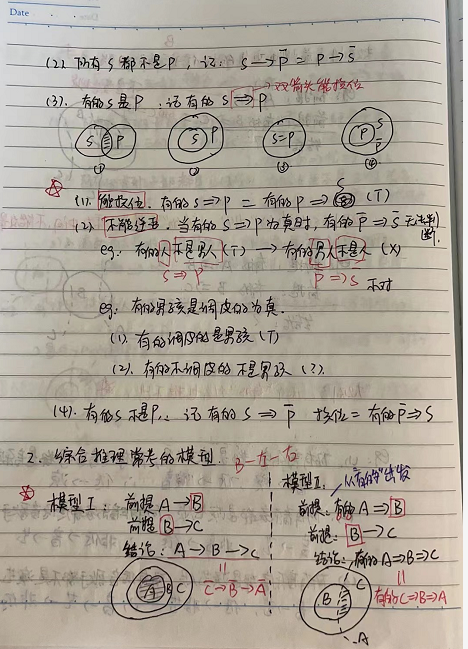 Date
(2). 所有S都不是P, 记: S→P̄ = P→S̄
(3). 有的S是P, 记有的S⇒P 双箭头能换位
S P
S P
S=P
P S
① ② ③ ④
(1). 能换位. 有的S⇒P = 有的P⇒S (T)
(2). 不能逆否. 当有的S⇒P为真时, 有的P̄⇒S̄ 无法判断.
eg: 有的人不是男人(T) → 有的男人不是人(X)
S⇒P̄ P̄⇒S̄ 不对
eg: 有的男孩是调皮的为真.
(1). 有的调皮的是男孩(T)
(2). 有的不调皮的不是男孩(?).
(4). 有的S不是P, 记有的S⇒P̄ 换位= 有的P̄⇒S
2. 综合推理常考的模型. B一左一右
模型I: 前提A→B
前提B→C
结论: A→B→C
||
C̄→B̄→Ā
A B C
模型II: 从"有的"出发
前提: 有的A⇒B
前提: B→C
结论: 有的A⇒B⇒C
||
有的C⇒B⇒A
B C A